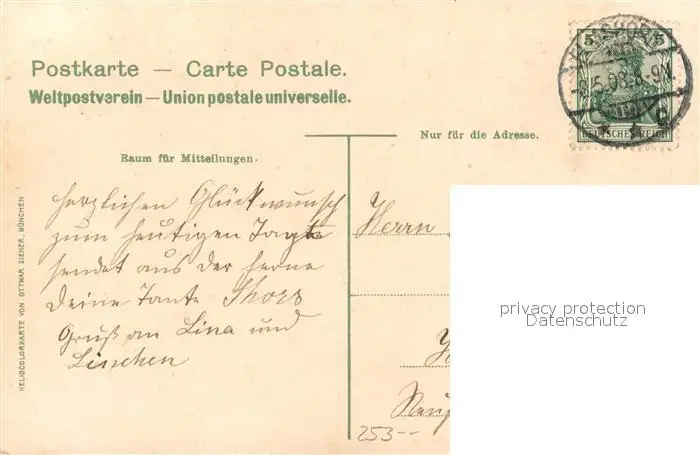 Postkarte — Carte Postale.
Weltpostverein — Union postale universelle.
5 5
DEUTSCHES REICH
Nur für die Adresse.
Raum für Mitteilungen.
herzlichen Glückwunsch
zum heutigen Tage
sendet aus der ferne
Deine Tante
Gruß an Lina und
Linchen
Herrn
253--
HELIOCOLORKARTE VON OTTMAR ZIEHER, MÜNCHEN
privacy protection
Datenschutz